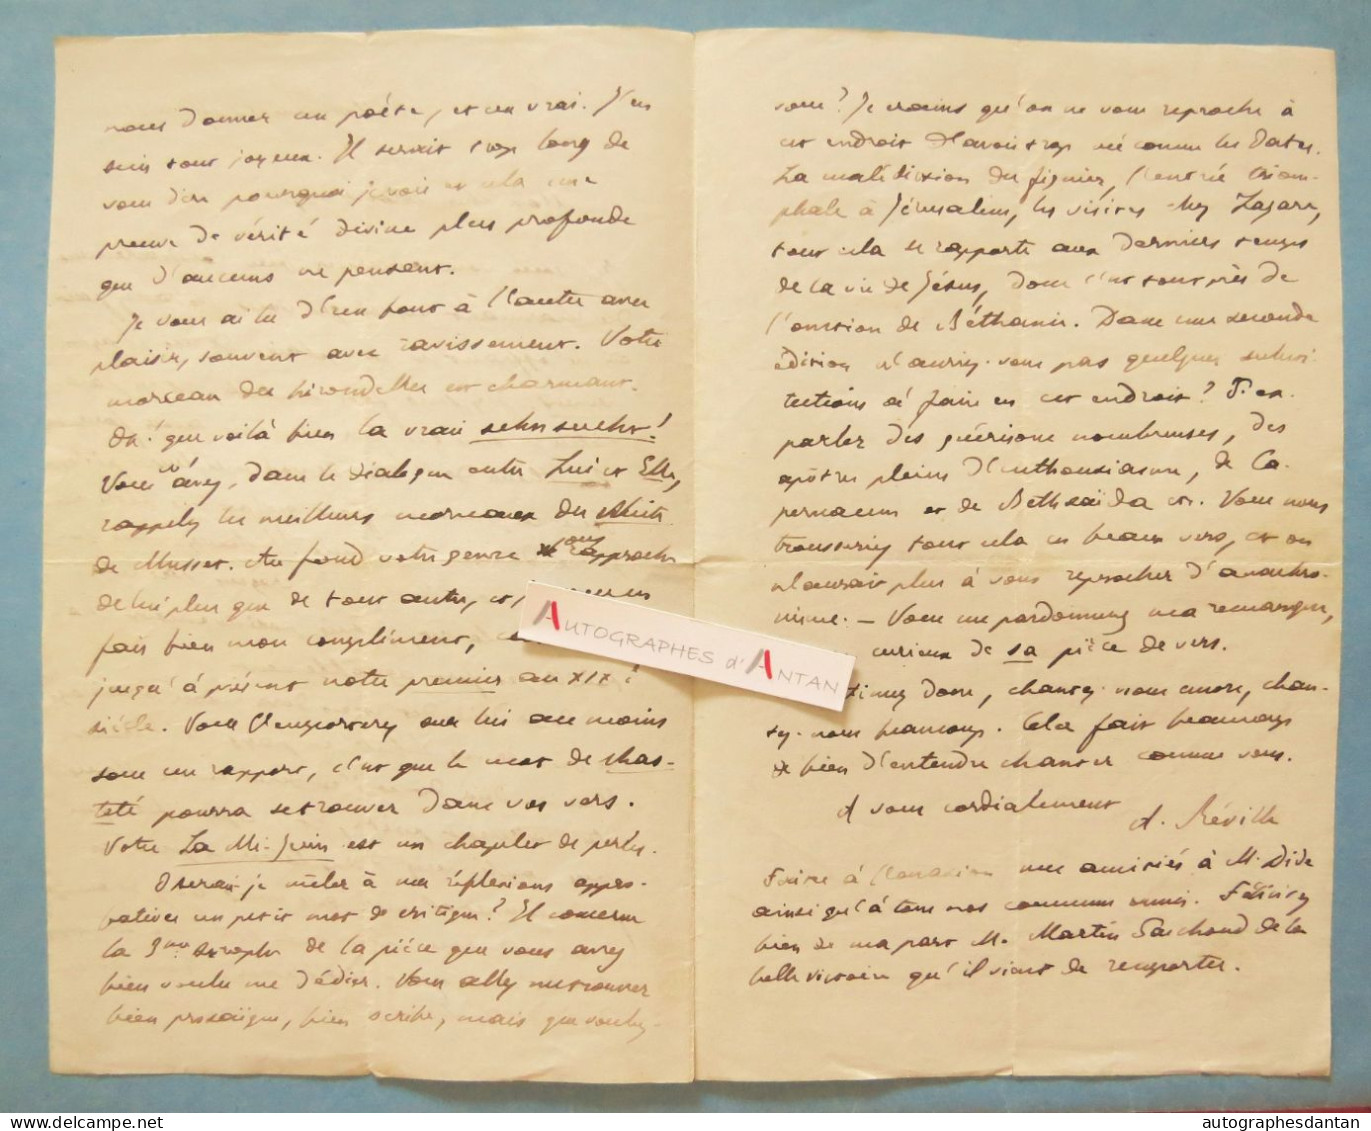 nous donner un poète, et un vrai. J'en
suis tout joyeux. Il serait trop long de
vous dire pourquoi je vois en cela une
preuve de vérité divine plus profonde
que d'aucuns ne pensent.
Je vous ai lu d'un bout à l'autre avec
plaisir, souvent avec ravissement. Votre
morceau des hirondelles est charmant.
Oh! que voilà bien la vraie sehnsucht!
Vous m'avez, dans le dialogue entre Lui et Elle,
rappelé les meilleurs morceaux des Nuits
de Musset. Au fond votre genre vous rapproche
de lui plus que de tout autre, et je
fais bien mon compliment,
jusqu'à présent notre premier au XIXe
siècle. Vous l'emporterez sur lui au moins
sous un rapport, c'est que le mot de chas-
teté pourra se trouver dans vos vers.
Votre La Mi-Juin est un chapelet de perles.
Oserai-je mêler à mes réflexions appro-
batives un petit mot de critique? Il concerne
la 3me strophe de la pièce que vous avez
bien voulu me dédier. Vous allez me trouver
bien prosaïque, bien scribe, mais que voulez-
vous? Je crains qu'on ne vous reproche à
cet endroit d'avoir trop mé connu les dates.
La malédiction du figuier, l'entrée triom-
phale à Jérusalem, les visites chez Lazare,
tout cela se rapporte aux derniers temps
de la vie de Jésus, donc c'est tout près de
l'onction de Béthanie. Dans une seconde
édition n'auriez-vous pas quelques substi-
tutions à faire en cet endroit?
parler des guérisons nombreuses, des
apôtres pleins d'enthousiasme, de Ca-
pernaum et de Bethsaïda etc. Vous nous
trousseriez tout cela en beaux vers, et on
n'aurait plus à vous reprocher d'anachro-
nisme. — Vous me pardonnerez ma remarque,
curieux de sa pièce de vers.
donc, chantez-nous encore, chan-
tez-nous beaucoup. Cela fait beaucoup
de bien d'entendre chanter comme vous.
A vous cordialement
A. Réville
Faire à l'occasion mes amitiés à M. Dide
ainsi qu'à tous nos communs amis. Félicitez
bien de ma part M. Martin Paschoud de la
belle victoire qu'il vient de remporter.
AUTOGRAPHES d'ANTAN
autographesdantan